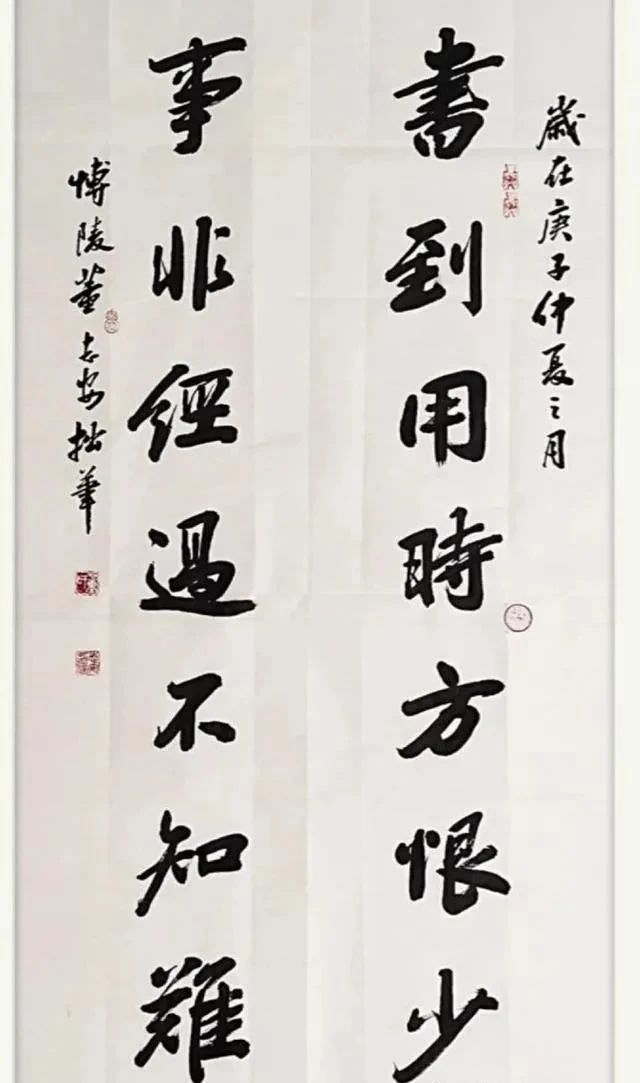 歲在庚子仲夏之月
書到用時方恨少
事非經過不知難
博陵董志安拙筆